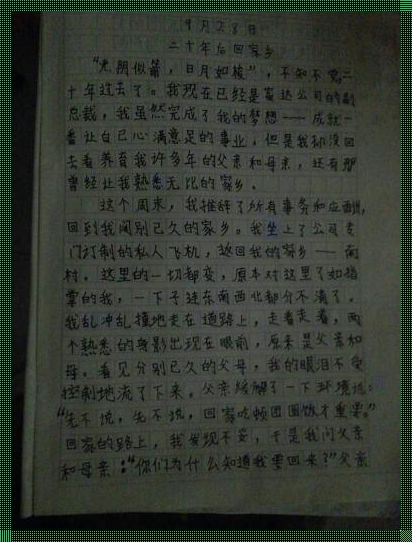 9月28日
二十年后回家乡
“光阴似箭，日月如梭”，不知不觉二
十年过去了。我现在已经是富达公司的副
总裁，我虽然完成了我的梦想——成就一
番让自己心满意足的事业，但是我却没回
去看养育我许多年的父亲和母亲，还有那
曾经让我熟悉无比的家乡。
这个周末，我推辞了所有事务和应酬，
回到我阔别已久的家乡。我坐上了公司专
门打制的私人飞机，返回我的家乡——南
村。这里的一切都变，原本对这里了如指
掌的我，一下子连东南西北都分不清了。
我乱冲乱撞地走在道路上，走着走着，两
个熟悉的身影出现在眼前，原来是父亲和
母。看见分别已久的父母，我的眼泪不受
控制地流了下来。父亲缓解了一下环境说：
“先不说，先不说，回家吃顿团圆饭才重要。”
回家的路上，我发现不妥，于是我问父亲
和母亲：“你们为什么知道我要回来？”父亲